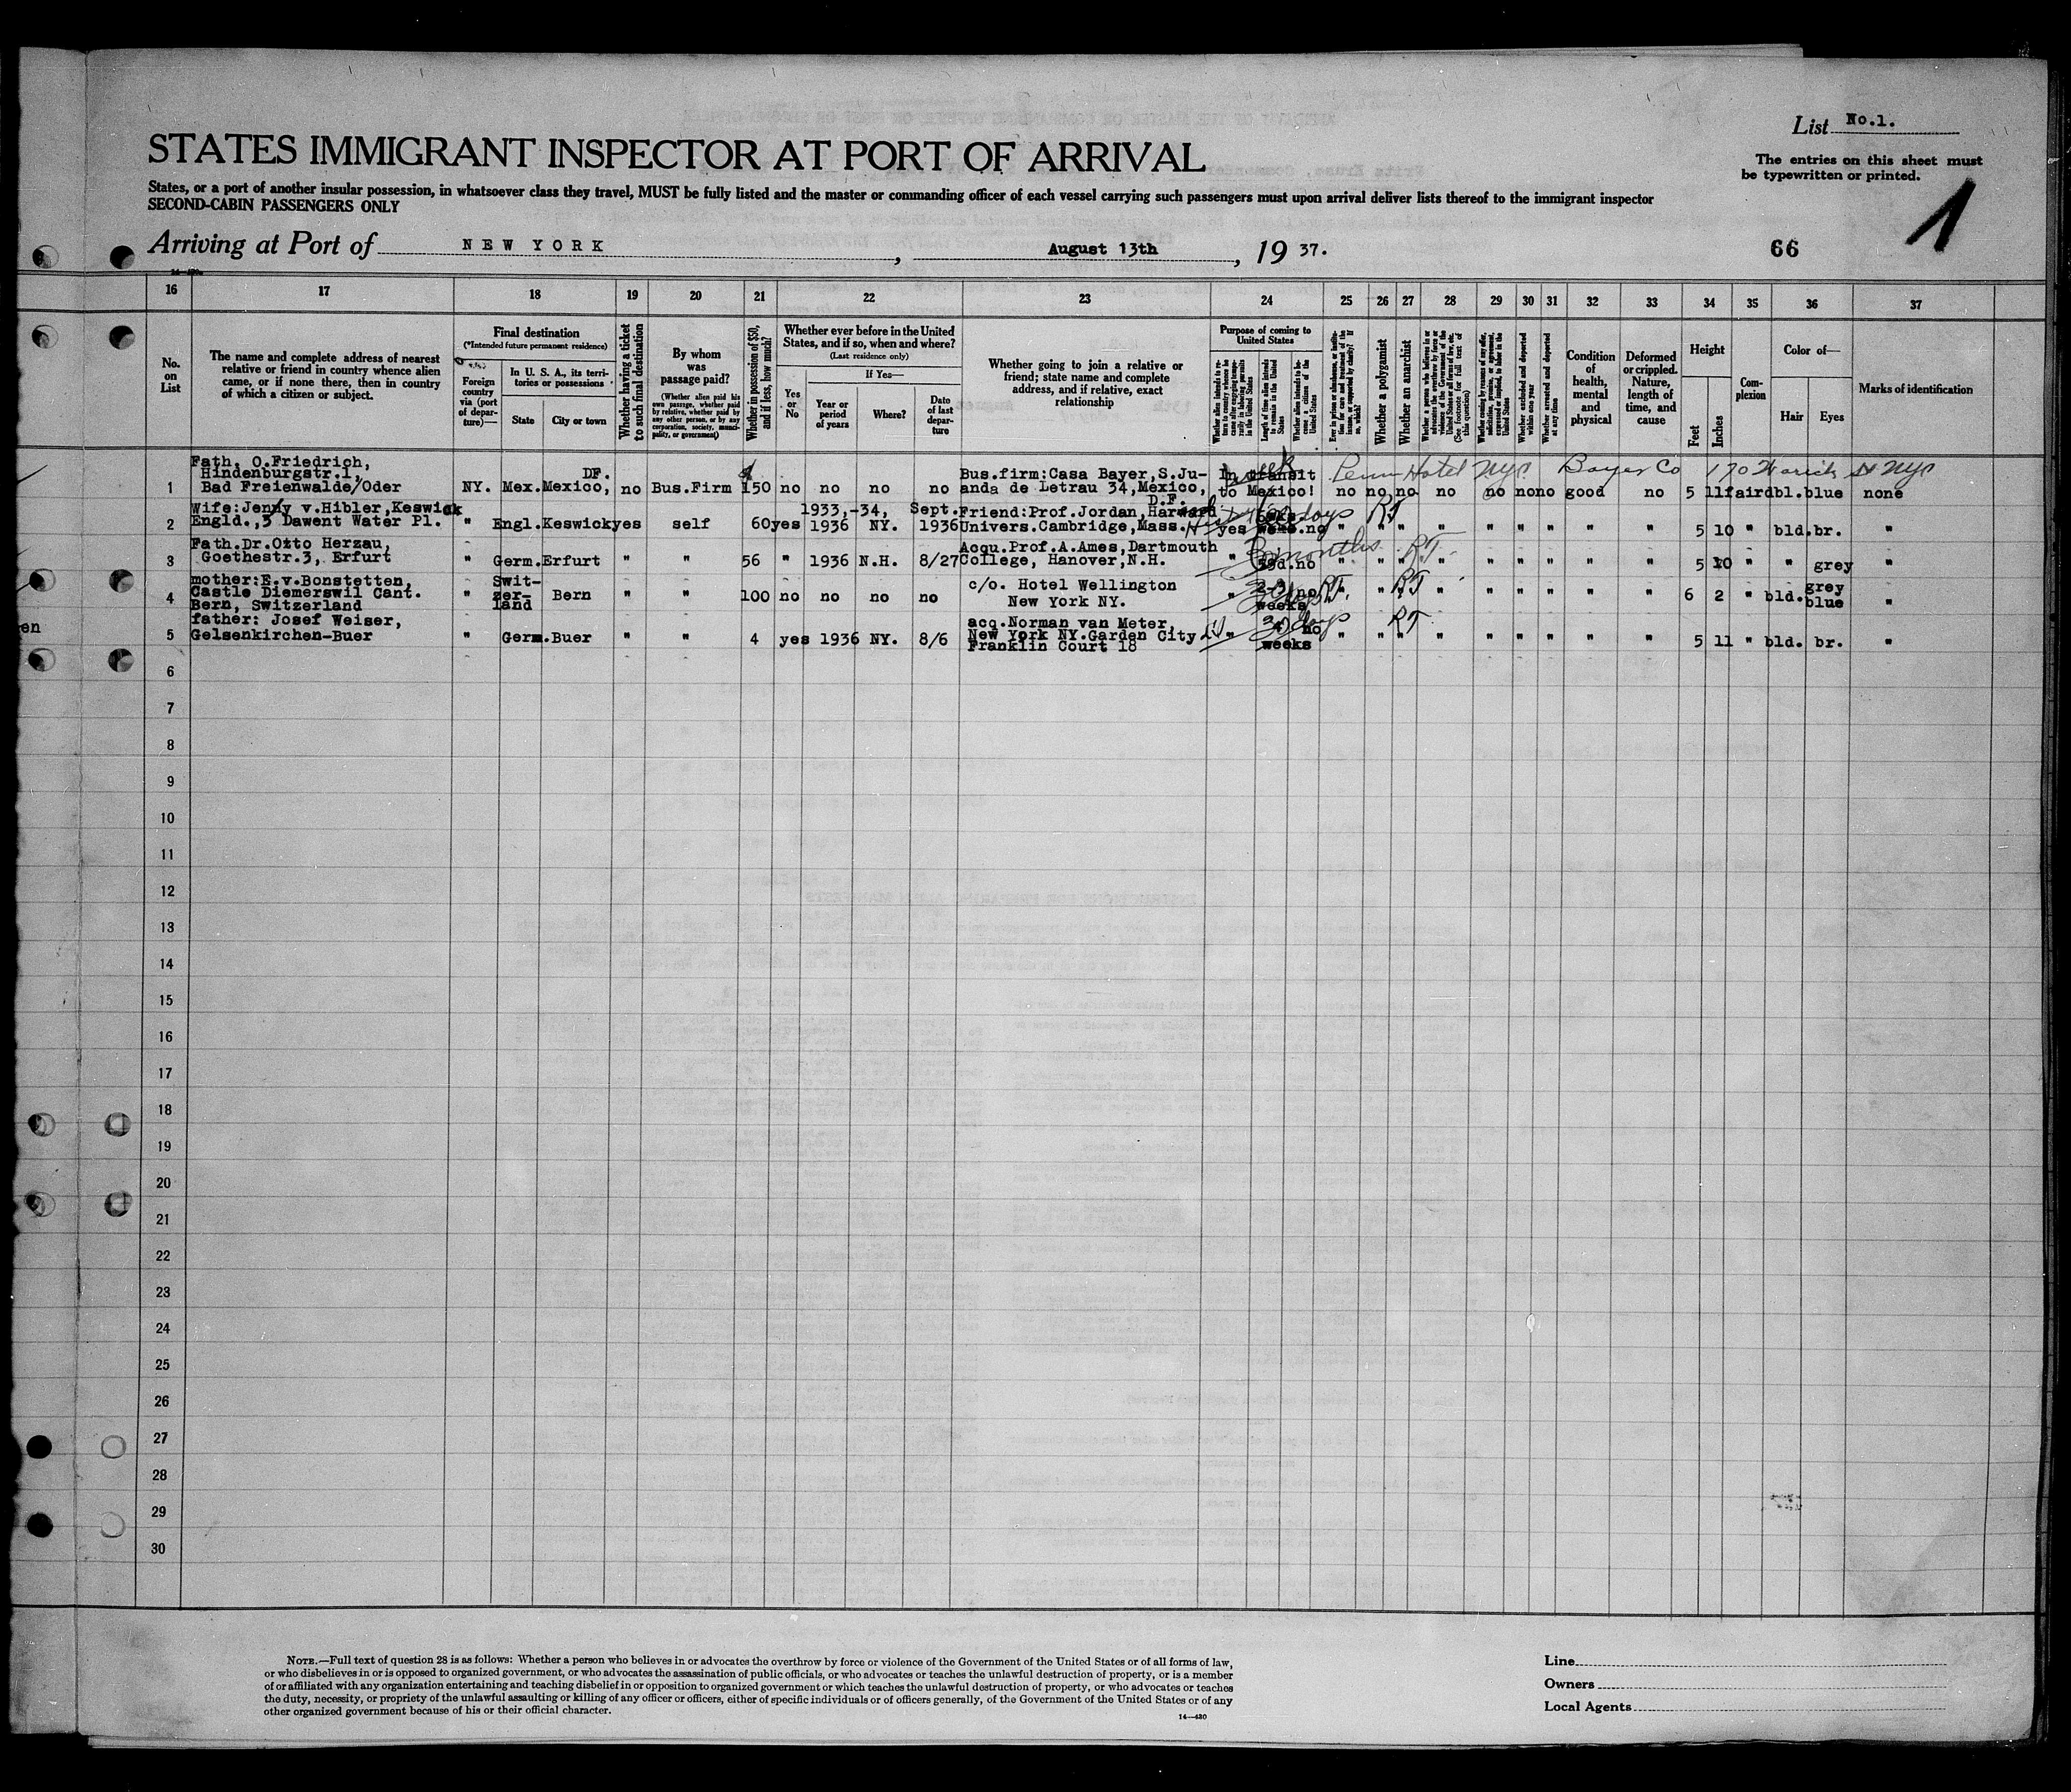 List No.1.
The entries on this sheet must
be typewritten or printed.
STATES IMMIGRANT INSPECTOR AT PORT OF ARRIVAL
States, or a port of another insular possession, in whatsoever class they travel, MUST be fully listed and the master or commanding officer of each vessel carrying such passengers must upon arrival deliver lists thereof to the immigrant inspector
SECOND-CABIN PASSENGERS ONLY
1
Arriving at Port of NEW YORK, August 13th, 19 37.
66
16 17 18 19 20 21 22 23 24 25 26 27 28 29 30 31 32 33 34 35 36 37
No.
on
List
The name and complete address of nearest
relative or friend in country whence alien
came, or if none there, then in country
of which a citizen or subject.
Final destination
(*Intended future permanent residence)
Foreign
country
via (port
of depar-
ture)—
In U. S. A., its terri-
tories or possessions
State
City or town
Whether having a ticket
to such final destination
By whom
was
passage paid?
(Whether alien paid his
own passage, whether paid
by relative, whether paid by
any other person, or by any
corporation, society, munici-
pality, or government)
Whether in possession of $50,
and if less, how much?
Whether ever before in the United
States, and if so, when and where?
(Last residence only)
Yes
or
No
If Yes—
Year or
period
of years
Where?
Date
of last
depar-
ture
Whether going to join a relative or
friend; state name and complete
address, and if relative, exact
relationship
Purpose of coming to
United States
Length of time alien intends
to remain in the United
States
Whether alien intends to be-
come a citizen of the
United States
Whether a polygamist
Whether an anarchist
Whether excluded and deported
within one year
Whether arrested and deported
at any time
Condition
of
health,
mental
and
physical
Deformed
or crippled.
Nature,
length of
time, and
cause
Height
Feet
Inches
Com-
plexion
Color of—
Hair
Eyes
Marks of identification
Penn Hotel NYC Bayer Co 170 Varick St NYC
Fath, O.Friedrich,
Hindenburgstr.1,
DF.
Bus.firm:Casa Bayer,S.Ju-
In transit
1 Bad Freienwalde/Oder NY. Mex. Mexico, no Bus.Firm 150 no no no no anda de Letrau 34,Mexico, to Mexico! no no no no no no no good no 5 11 fair dbl. blue none
D.F.
Wife:Jenny v.Hibler,Keswick
1933,-34, Sept. Friend:Prof.Jordan,Harward
days RT
2 Engld.,3 Dawent Water Pl. " Engl. Keswick yes self 60 yes 1936 NY. 1936 Univers.Cambridge,Mass. yes no " " " " " " " " " 5 10 " bld. br. "
Fath.Dr.Otto Herzau,
Acqu.Prof.A.Ames,Dartmouth
3 months RT
3 Goethestr.3, Erfurt " Germ. Erfurt " " 56 " 1936 N.H. 8/27 College, Hanover,N.H. " no " " " " " " " " " 5 10 " " grey "
mother:E.v.Bonstetten,
Castle Diemerswil Cant.
Bern, Switzerland
4 " Swit-
zer-
land
Bern " " 100 no no no no
c/o. Hotel Wellington
New York NY.
" 2-3 weeks no RT. " RT " " " " " " " 6 2 " bld. grey
blue "
father: Josef Weiser,
acq.Norman van Meter,
5 Gelsenkirchen-Buer " Germ. Buer " " 4 yes 1936 NY. 8/6 New York NY.Garden City
Franklin Court 18
" weeks no days RT " " " " " " " " " 5 11 " bld. br. "
en
6
7
8
9
10
11
12
13
14
15
16
17
18
19
20
21
22
23
24
25
26
27
28
29
30
NOTE.—Full text of question 28 is as follows: Whether a person who believes in or advocates the overthrow by force or violence of the Government of the United States or of all forms of law,
or who disbelieves in or is opposed to organized government, or who advocates the assassination of public officials, or who advocates or teaches the unlawful destruction of property, or is a member
of or affiliated with any organization entertaining and teaching disbelief in or opposition to organized government or which teaches the unlawful destruction of property, or who advocates or teaches
the duty, necessity, or propriety of the unlawful assaulting or killing of any officer or officers, either of specific individuals or of officers generally, of the Government of the United States or of any
other organized government because of his or their official character.
14—430
Line
Owners
Local Agents